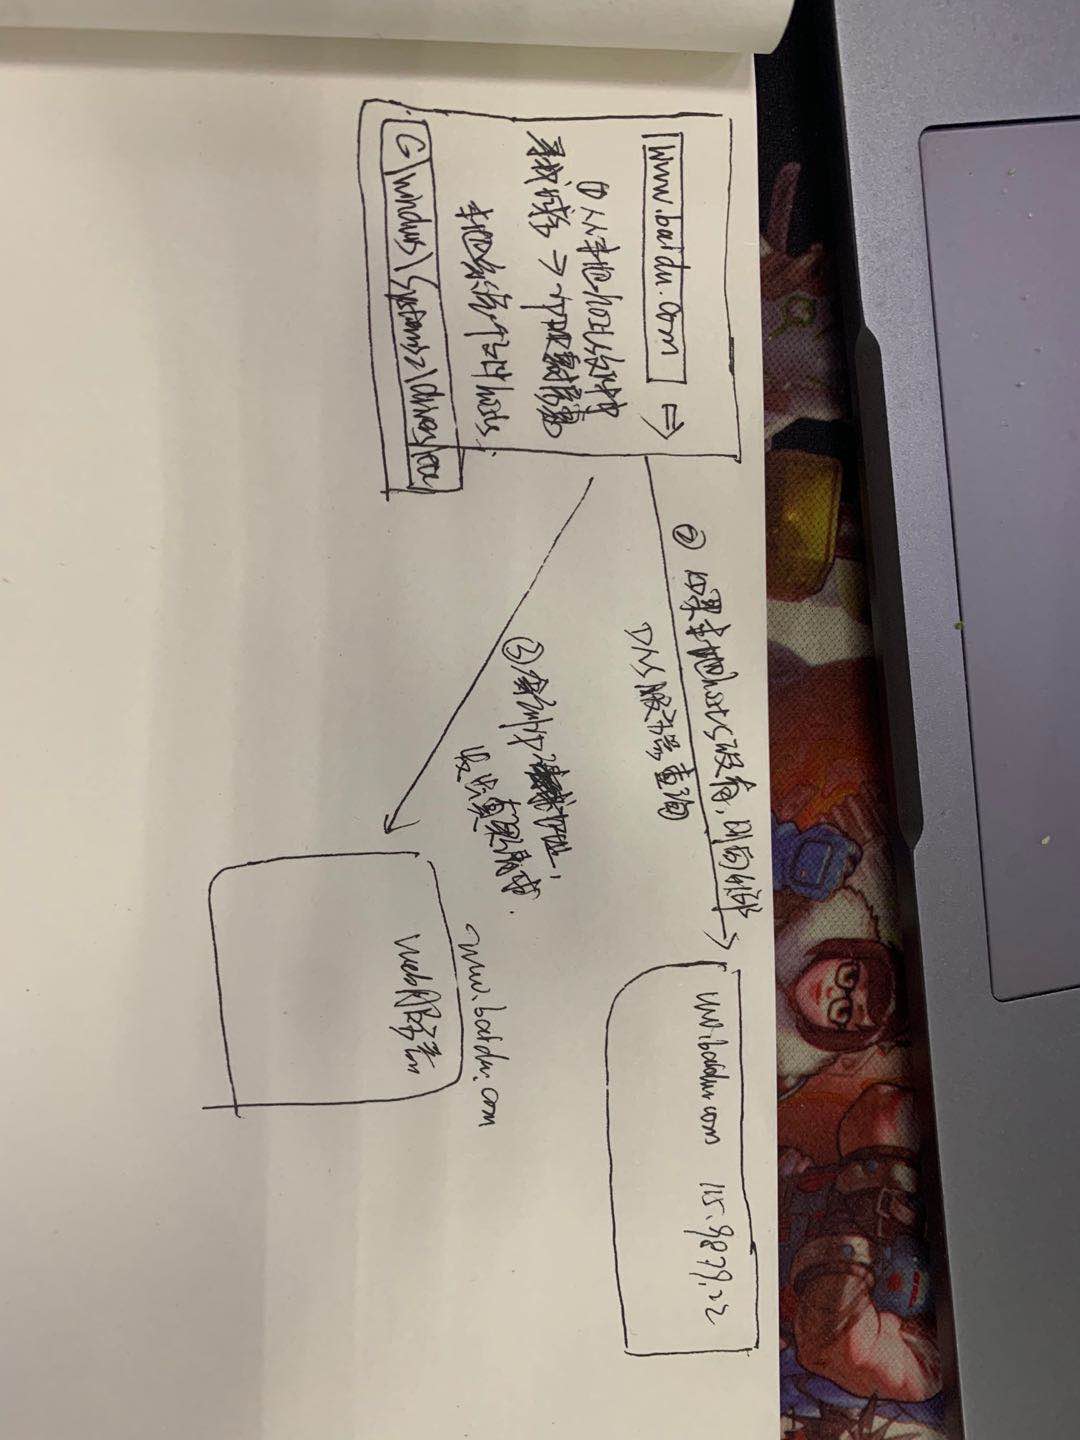 www.baidu.com
① 从本地hosts文件中
寻找域名 → ip
本地系统个文件hosts
C\windows\System32\drives\etc
② 如果本地hosts没有,则向外部
DNS服务器查询
www.baidu.com 115.9879.22
③ ip 地址,
发出真实请求.
www.baidu.com
web服务器